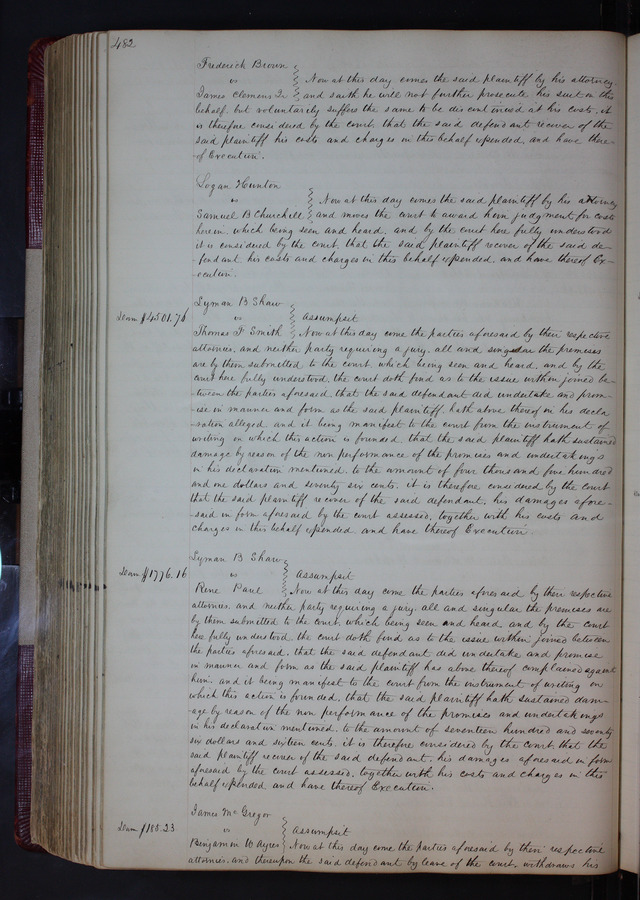 482
Frederick Brown
vs
Now at this day comes the said plaintiff by his attorney
James Clemens Jr and saith he will not further prosecute his suit in this
behalf but voluntarily suffers the same to be discontinued at his costs. it
is therefore considered by the court that the said defendant recover of the
said plaintiff his costs and charges in this behalf expended, and have there-
-of Execution.
Logan Hunton
vs
Now at this day comes the said plaintiff by his attorney
Samuel B Churchill and moves the court to award him judgment for costs
herein which being seen and heard, and by the court here fully understood
it is considered by the court, that the said plaintiff recover of the said de-
-fendant his costs and charges in this behalf expended, and have thereof Ex-
-ecution.
Lyman B Shaw
Dam $4501.76
vs
Assumpsit
Thomas F. Smith Now at this day come the parties aforesaid by their respective
attornies. and neither party requiring a jury. all and singular the premises
are by them submitted to the court, which being seen and heard, and by the
court here fully understood, the court doth find as to the issue within joined be-
-tween the parties aforesaid, that the said defendant did undertake and prom-
-ise in manner and form as the said plaintiff hath above thereof in his decla
-ration alleged and it being manifest to the court from the instrument of
writing on which this action is founded, that the said plaintiff hath sustained
damage by reason of the non performance of the promises and undertakings
in his declaration mentioned, to the amount of four thousand five hundred
and one dollars and seventy six cents. it is therefore considered by the court
that the said plaintiff recover of the said defendant, his damages afore-
-said in form aforesaid by the court assessed, together with his costs and
charges in this behalf expended and have thereof Execution
Lyman B Shaw
Dam $1776.16
vs
Assumpsit
Rene Paul Now at this day come the parties aforesaid by their respective
attornies, and neither party requiring a jury, all and singular the premises are
by them submitted to the court, which being seen and heard and by the court
here fully understood the court doth find as to the issue within joined between
the parties aforesaid, that the said defendant did undertake and promise
in manner and form as the said plaintiff has above thereof complained against
him, and it being manifest to the court from the instrument of writing on
which this action is founded, that the said plaintiff hath sustained dam-
-age by reason of the non performance of the promises and undertakings
in his declaration mentioned, to the amount of seventeen hundred and seventy
six dollars and sixteen cents, it is therefore considered by the court that the
said plaintiff recover of the said defendant, his damages aforesaid in form
aforesaid by the court assessed, together with his costs and charges in this
behalf expended and have thereof Execution.
James McGregor
Dam $188.23
vs
Assumpsit
Benjamin W Ayres Now at this day come the parties aforesaid by their respective
attornies, and thereupon the said defendant by leave of the court, withdraws his